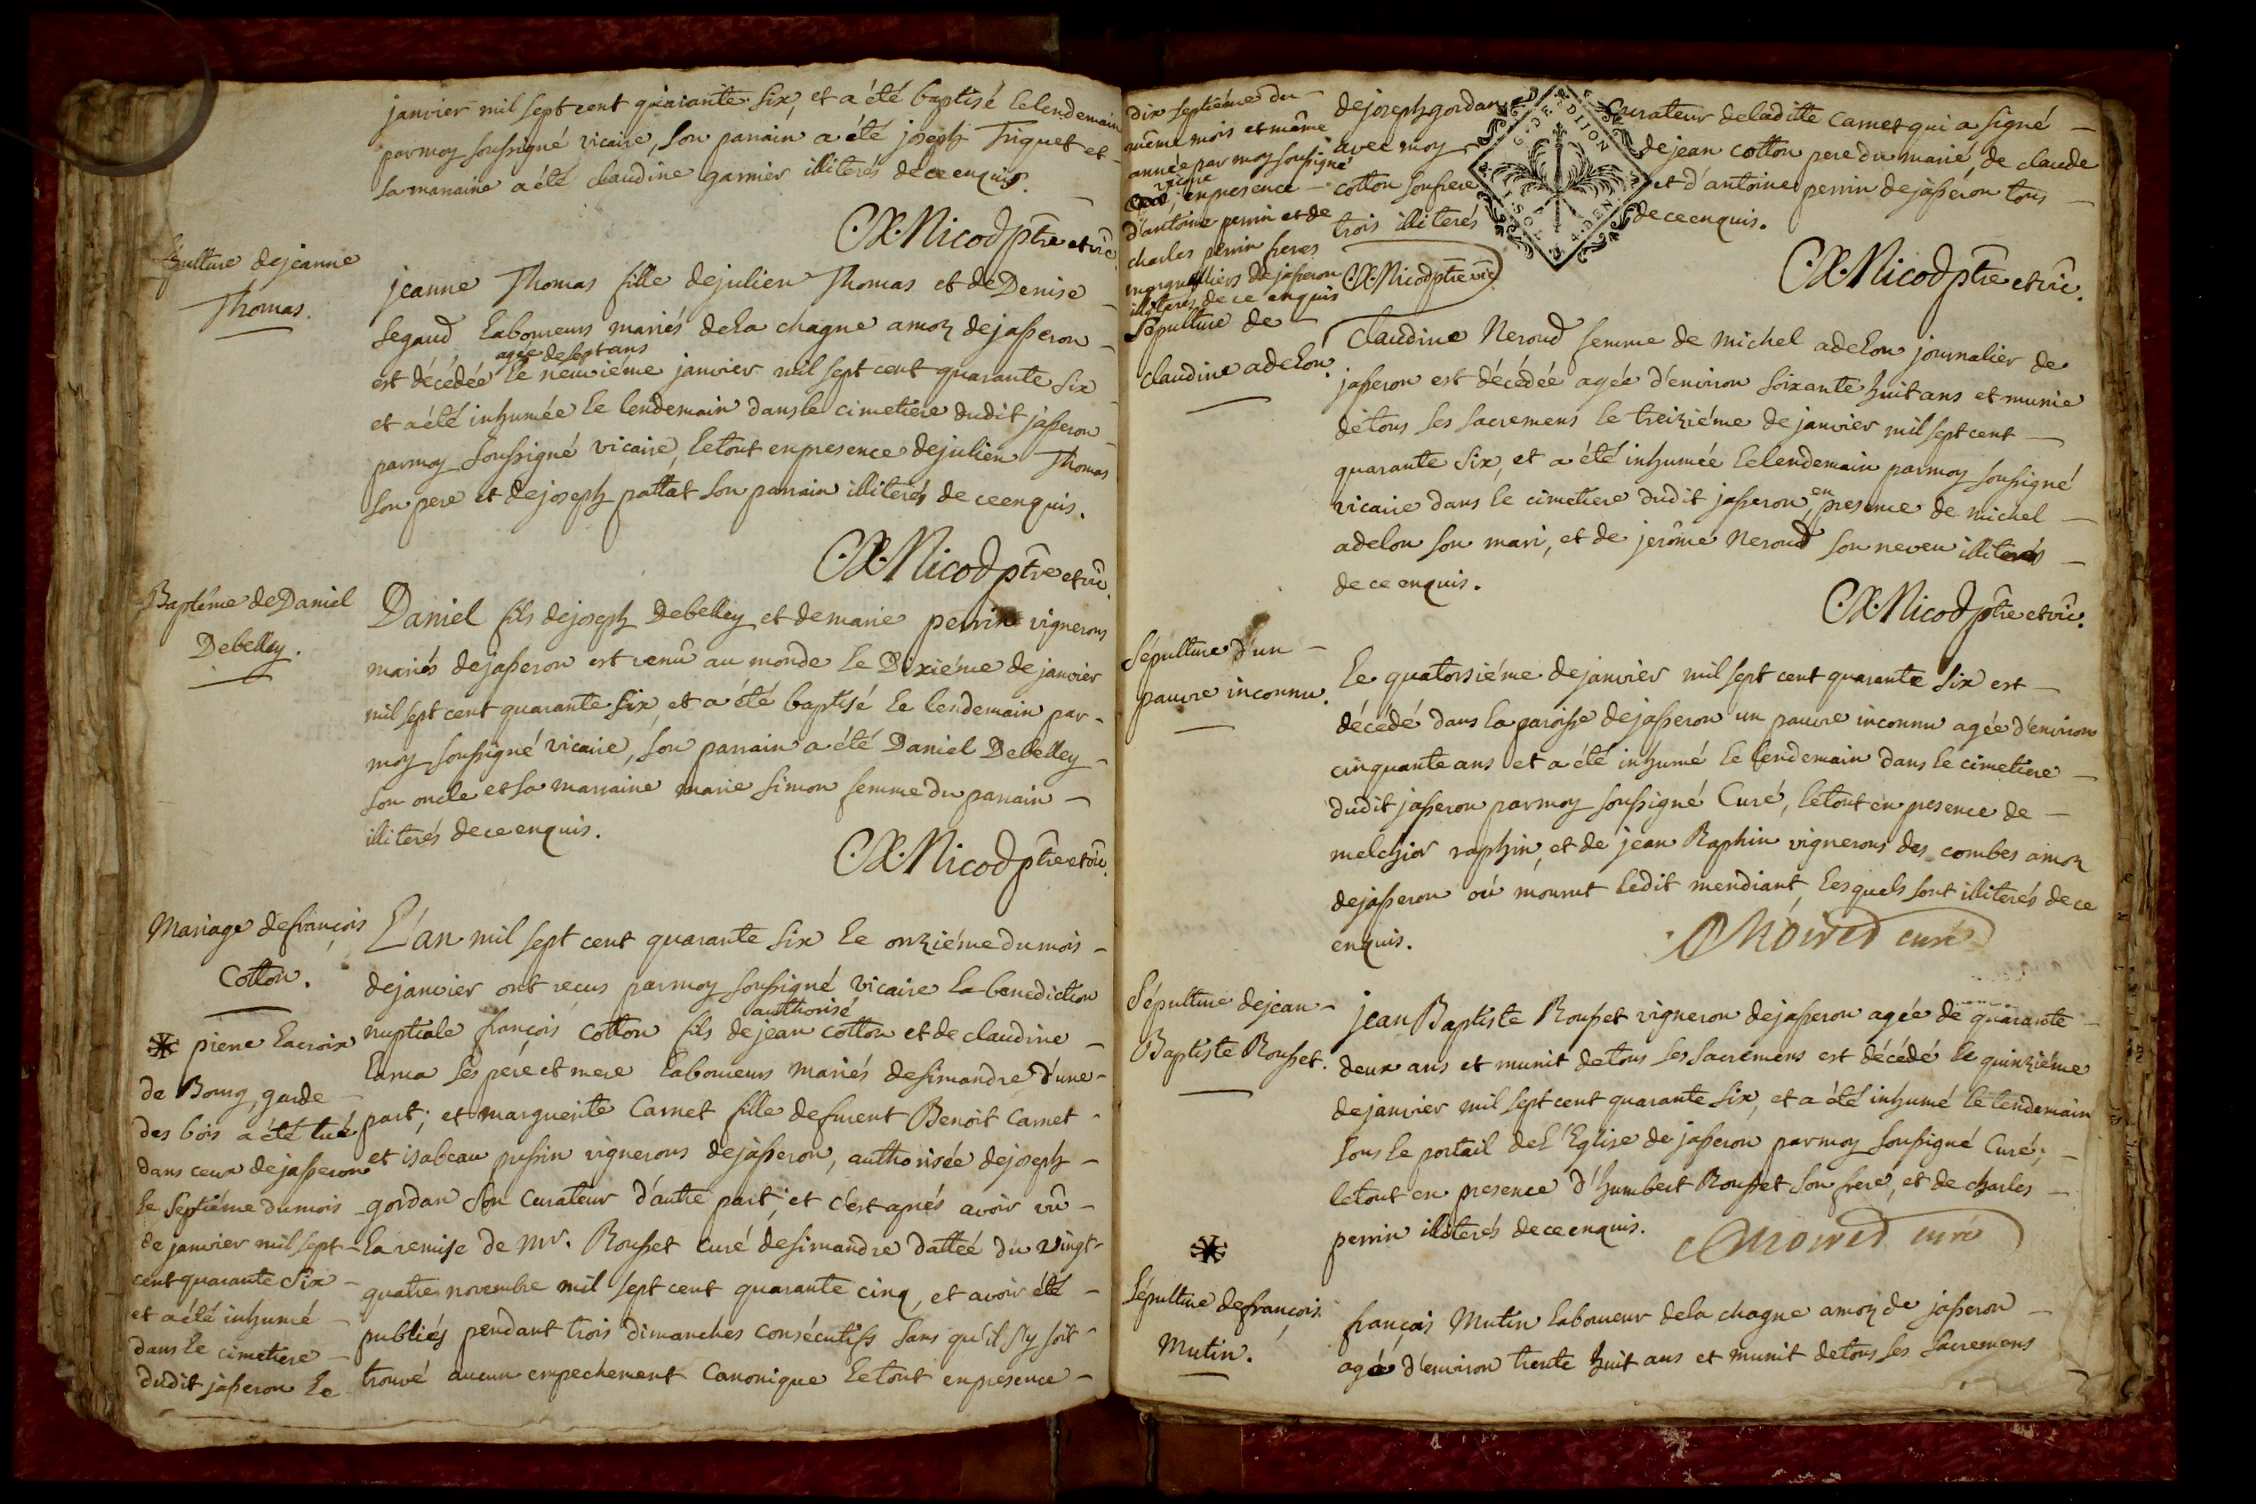 janvier mil sept cent quarante six, et a été baptisé le lendemain
par moy soussigné vicaire, son parrain a été joseph Triquet et
sa marraine a été claudine garnier illiterés de ce enquis.
C.X. Nicod ptre et vic.
Sépulture de jeanne
Thomas.
jeanne Thomas fille de julien Thomas et de Denise
Segaud laboureurs mariés de la chagne amoz de jasseron
agée de sept ans
est décédée le neuviéme janvier mil sept cent quarante six
et a été inhumée le lendemain dans le cimetiere dudit jasseron
par moy soussigné vicaire, le tout en presence de julien Thomas
son pere et de joseph pattat son parrain illiterés de ce enquis.
C.X. Nicod ptre et vic.
Baptéme de Daniel
Debelley.
Daniel fils de joseph Debelley et de marie perrin vignerons
mariés de jasseron est venû au monde le Dixiéme de janvier
mil sept cent quarante six, et a été baptisé le lendemain par
moy soussigné vicaire, son parrain a été Daniel Debelley
son oncle et sa marraine marie Simon femme du parrain
illiterés de ce enquis.
C.X. Nicod ptre et vic.
Mariage de françois
Cotton.
L'an mil sept cent quarante six le onziéme du mois
de janvier ont reçus par moy soussigné vicaire la benediction
authorisé
nuptiale françois cotton fils de jean cotton et de claudine
Lama ses pere et mere laboureurs mariés de simandre d'une
part; et marguerite Carnet fille de furent Benoit Carnet
et isabeau pussin vignerons de jasseron, authorisée de joseph
gordan son curateur d'autre part; et c'est aprés avoir vû
la remise de Mr. Rousset curé de simandre dattée du vingt
quatre novembre mil sept cent quarante cinq, et avoir été
publiés pendant trois dimanches consécutifs sans qu'il s'y soit
trouvé aucun empechement Canonique le tout en presence
pierre Lacroix
de Bourg, garde
des bois a été tué
dans ceux de jasseron
le septiéme du mois
de janvier mil sept
cent quarante six
et a été inhumé
dans le cimetiere
dudit jasseron le
dix septiéme du
même mois et même
année par moy soussigné
vicaire
en presence
d'antoine perrin et de
charles perrin freres
marguilliers de jasseron
illiterés de ce enquis
C.X. Nicod ptre vic.
de joseph gordan curateur de laditte Carnet qui a signé
avec moy de jean cotton pere du marié, de claude
cotton son frere et d'antoine perrin de jasseron tous
trois illiterés de ce enquis.
G. DE DIJON
4. DEN
C.X. Nicod ptre et vic.
Sépulture de
claudine adelon.
Claudine Neroud femme de michel adelon journalier de
jasseron est décédée agée d'environ soixante huit ans et munie
de tous les sacremens le treiziéme de janvier mil sept cent
quarante six, et a été inhumée le lendemain par moy soussigné
vicaire dans le cimetiere dudit jasseron, en presence de michel
adelon son mari, et de jerôme Neroud son neveu illiterés
de ce enquis.
C.X. Nicod ptre et vic.
Sépulture d'un
pauvre inconnu.
Le quatorsiéme de janvier mil sept cent quarante six est
décédé dans la paroisse de jasseron un pauvre inconnu agée d'environ
cinquante ans et a été inhumé le lendemain dans le cimetiere
dudit jasseron par moy soussigné Curé, le tout en presence de
melchior raphin, et de jean Raphin vignerons des combes amoz
de jasseron où mourut ledit mendiant, lesquels sont illiterés de ce
enquis.
curé
Sépulture de jean
Baptiste Rousset.
jean Baptiste Rousset vigneron de jasseron agée de quarante
deux ans et munit de tous les Sacremens est décédé le quinziéme
de janvier mil sept cent quarante six, et a été inhumé le lendemain
sous le portail de l'Eglise de jasseron par moy soussigné Curé;
le tout en presence d'humbert Rousset son frere, et de charles
perrin illiterés de ce enquis.
curé
Sépulture de françois
Mutin.
françois Mutin laboureur de la chagne amoz de jasseron
agé d'environ trente huit ans et munit de tous les Sacremens